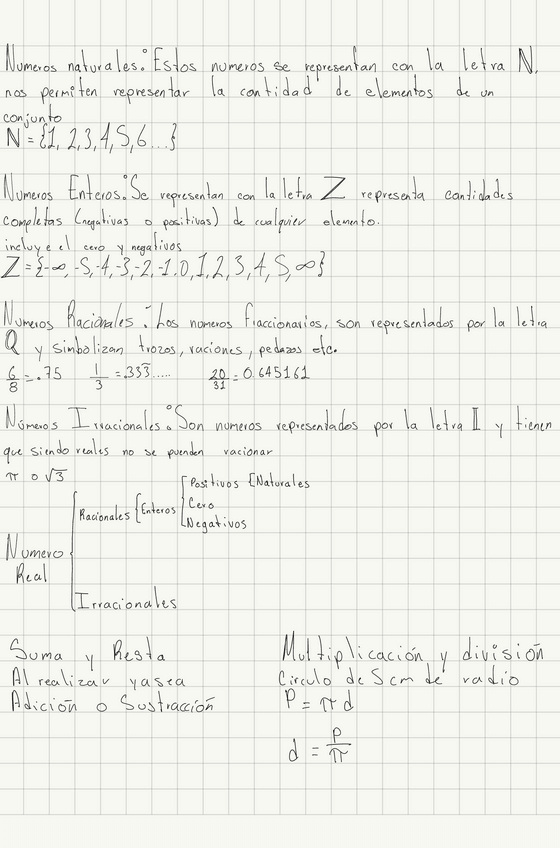 Numeros naturales: Estos numeros se representan con la letra N,
nos permiten representar la cantidad de elementos de un
conjunto
N = {1, 2, 3, 4, 5, 6...}
Numeros Enteros: Se representan con la letra Z representa cantidades
completas (negativas o positivas) de cualquier elemento.
incluye el cero y negativos
Z = {-∞, -5, -4, -3, -2, -1, 0, 1, 2, 3, 4, 5, ∞}
Numeros Racionales: Los numeros fraccionarios, son representados por la letra
Q y simbolizan trozos, raciones, pedazos etc.
6/8 = .75 1/3 = .333..... 20/31 = 0.645161
Números Irracionales: Son numeros representados por la letra I y tienen
que siendo reales no se pueden racionar
π o √3
Numero Real { Racionales { Enteros [ Positivos [Naturales
Cero
Negativos
Irracionales
Suma y Resta
Al realizar ya sea
Adición o Sustracción
Multiplicación y división
Circulo de 5 cm de radio
P = π d
d = P/π